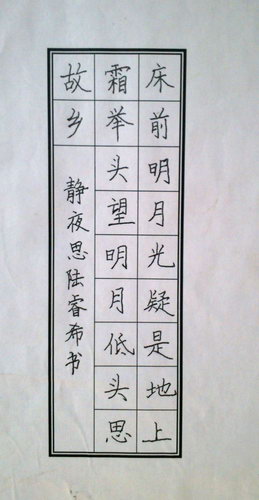 床前明月光疑是地上
霜举头望明月低头思
故乡
静夜思陆睿希书